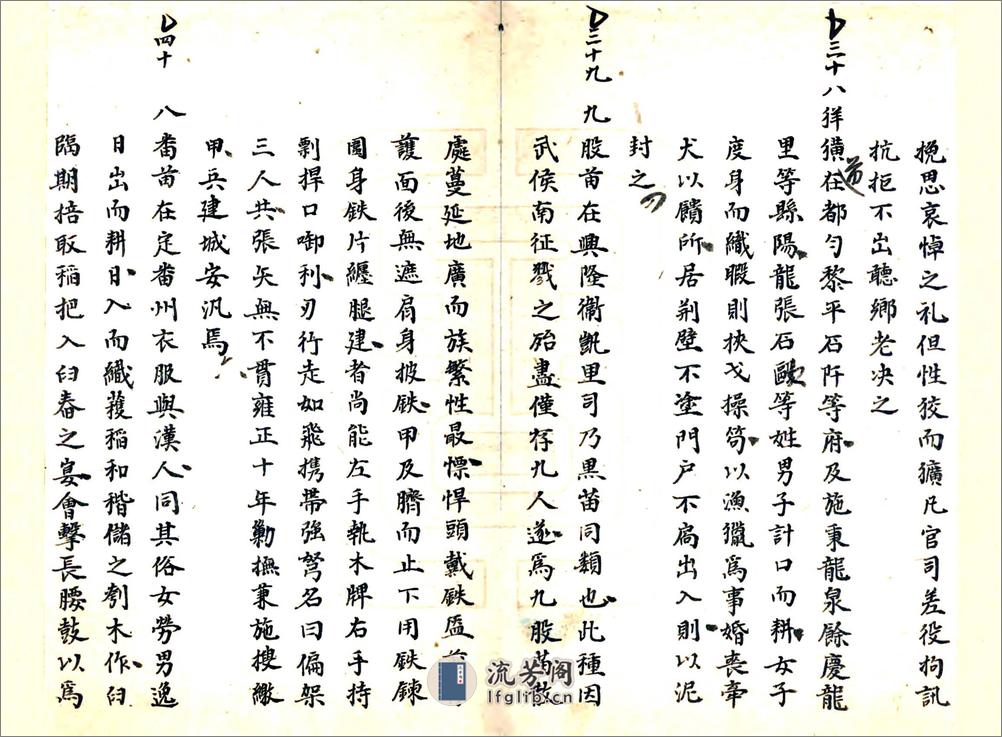 挽思哀悼之礼但性狡而獷凡官司差役拘訊
抗拒不出聽鄉老决之
三十八 徉獚在都匀黎平石阡等府及施秉龍泉餘慶龍
里等縣陽龍張石歐等姓男子計口而耕女子
度身而織暇則挾戈操笱以漁獵爲事婚喪宰
犬以饋所居荆壁不塗門户不扃出入則以泥
封之
三十九 九股苗在興隆衞凱里司乃黒苗同類也此種因
武侯南征戮之殆盡僅存九人遂爲九股苗散
處蔓延地廣而族繁性最慓悍頭戴鉄盔
護面後無遮肩身披鉄甲及臍而止下用鉄鍊
圍身鉄片纒腿建者尚能左手執木牌右手持
剽捍口啣利刃行走如飛携帶强弩名曰偏架
三人共張矢無不貫雍正十年勦撫兼施搜繳
甲兵建城安汛焉
四十 八番苗在定番州衣服與漢人同其俗女勞男逸
日出而耕日入而織穫稲和稭儲之刳木作臼
臨期掊取稲把入臼舂之宴會擊長腰鼓以爲
流芳阁
lfglib.cn